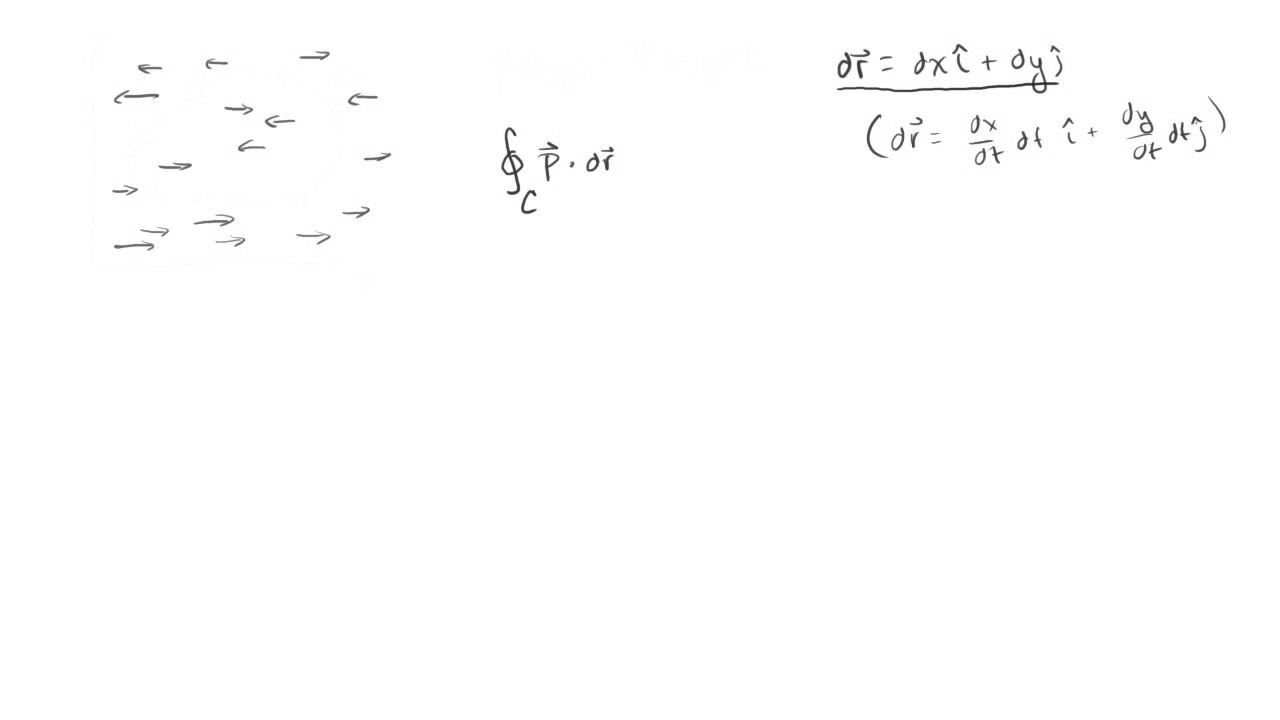 ∮_C P⃗ · dr⃗
dr⃗ = dx î + dy ĵ
(dr⃗ = dx/dt dt î + dy/dt dt ĵ)